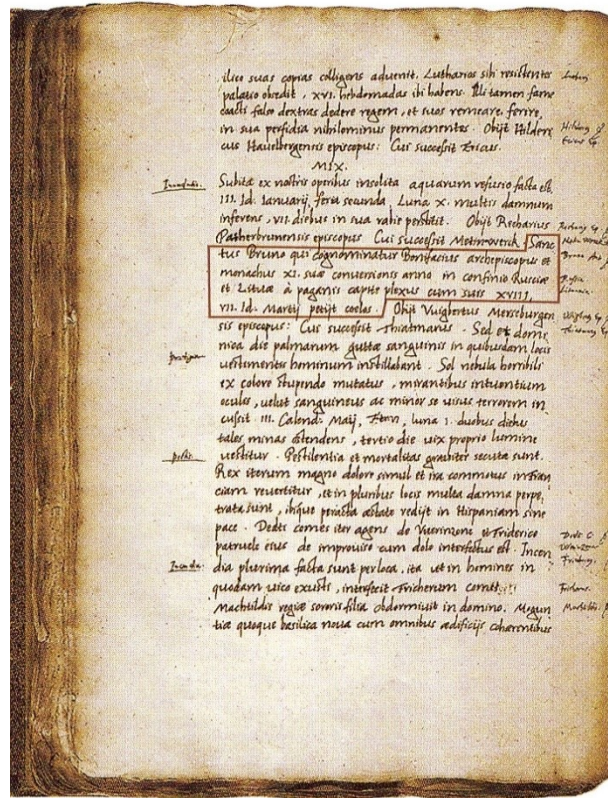 ilico suas copias colligens advenit, Lutharios sibi resistentes
palatio obsedit, XVI. hebdomadas ibi habens. Illi tamen fame
coacti falso dextras dedere regem, et suos remeare, ferire,
in sua perfidia nihilominus permanentes. Obijt Hilderi
cus Havelbergensis episcopus: Cui succeßit Ericus.
MIX.
Inundatio.
Subitæ ex nostris operibus insolita aquarum refusio facta est
III. Id. Ianuarij, feria secunda, Luna X. multis damnum
inferens, VII. diebus in sua rabie perstitit. Obijt Recharius
Patherbrunensis episcopus Cui succeßit Metinwerck. Sanc
tus Bruno qui cognominatur Bonifacius archepiscopus et
monachus XI. suæ conversionis anno in confinio Rusciæ
et Lituæ à paganis capite plexus cum suis XVIII.
VII. Id. Martij petijt coelos. Obijt Vuigbertus Merseburgen
sis episcopus: Cui succeßit Thiatmarus. Sed et domi
nica die palmarum guttæ sanguinis in quibusdam locis
vestementes hominum instillabant. Sol nebula horribili
ex colore stupendo mutatus, mirantibus intuentium
oculis, velut sanguineus ac minor se visus terrorem in
cußit. III. Calend. Maij, luna 1. duobus diebus
tales minas ostendens, tertio die vix proprio lumine
pestis.
vestitur. Pestilentia et mortalitas graviter secuta sunt.
Rex iterum magno dolore simul et ira commotus in Fran
ciam revertitur, et in pluribus locis multa damna perpe,
trata sunt, ibique peracta æstate redijt in Hispaniam sine
pace. Dedis comes iter agens de Vuerinzone et Friderico
patruele eius de improviso cum dolo interfectus est. Incen
Incendia.
dia plurima facta sunt per loca, ita ut in homines in
quodam vico exusti, interfecit Fricherum comet
Machtildis regiæ sororis filia obdormivit in domino. Mogun
tia quoque basilica nova cum omnibus ædificijs cohærentibus